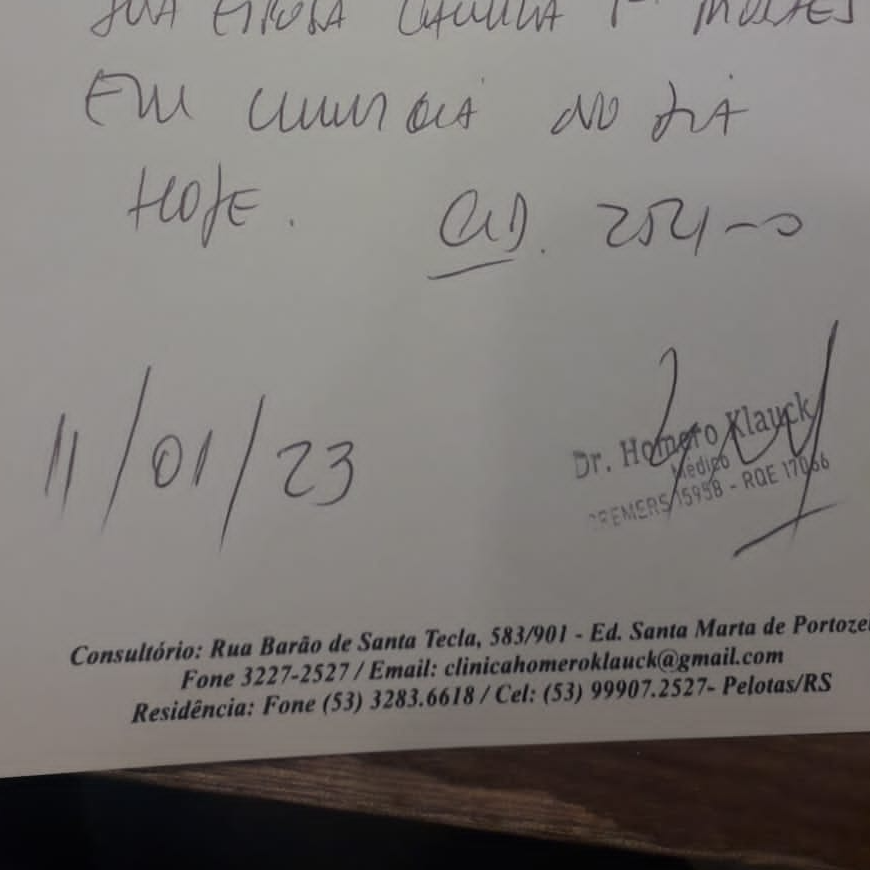 SUA ESPOSA CLAUDIA P. MORAES
EM CONSULTA NO DIA
HOJE. CID. Z54-0
11/01/23
Dr. Homero Klauck
Médico
CREMERS 15958 - RQE 17066
Consultório: Rua Barão de Santa Tecla, 583/901 - Ed. Santa Marta de Portoze
Fone 3227-2527 / Email: clinicahomeroklauck@gmail.com
Residência: Fone (53) 3283.6618 / Cel: (53) 99907.2527- Pelotas/RS